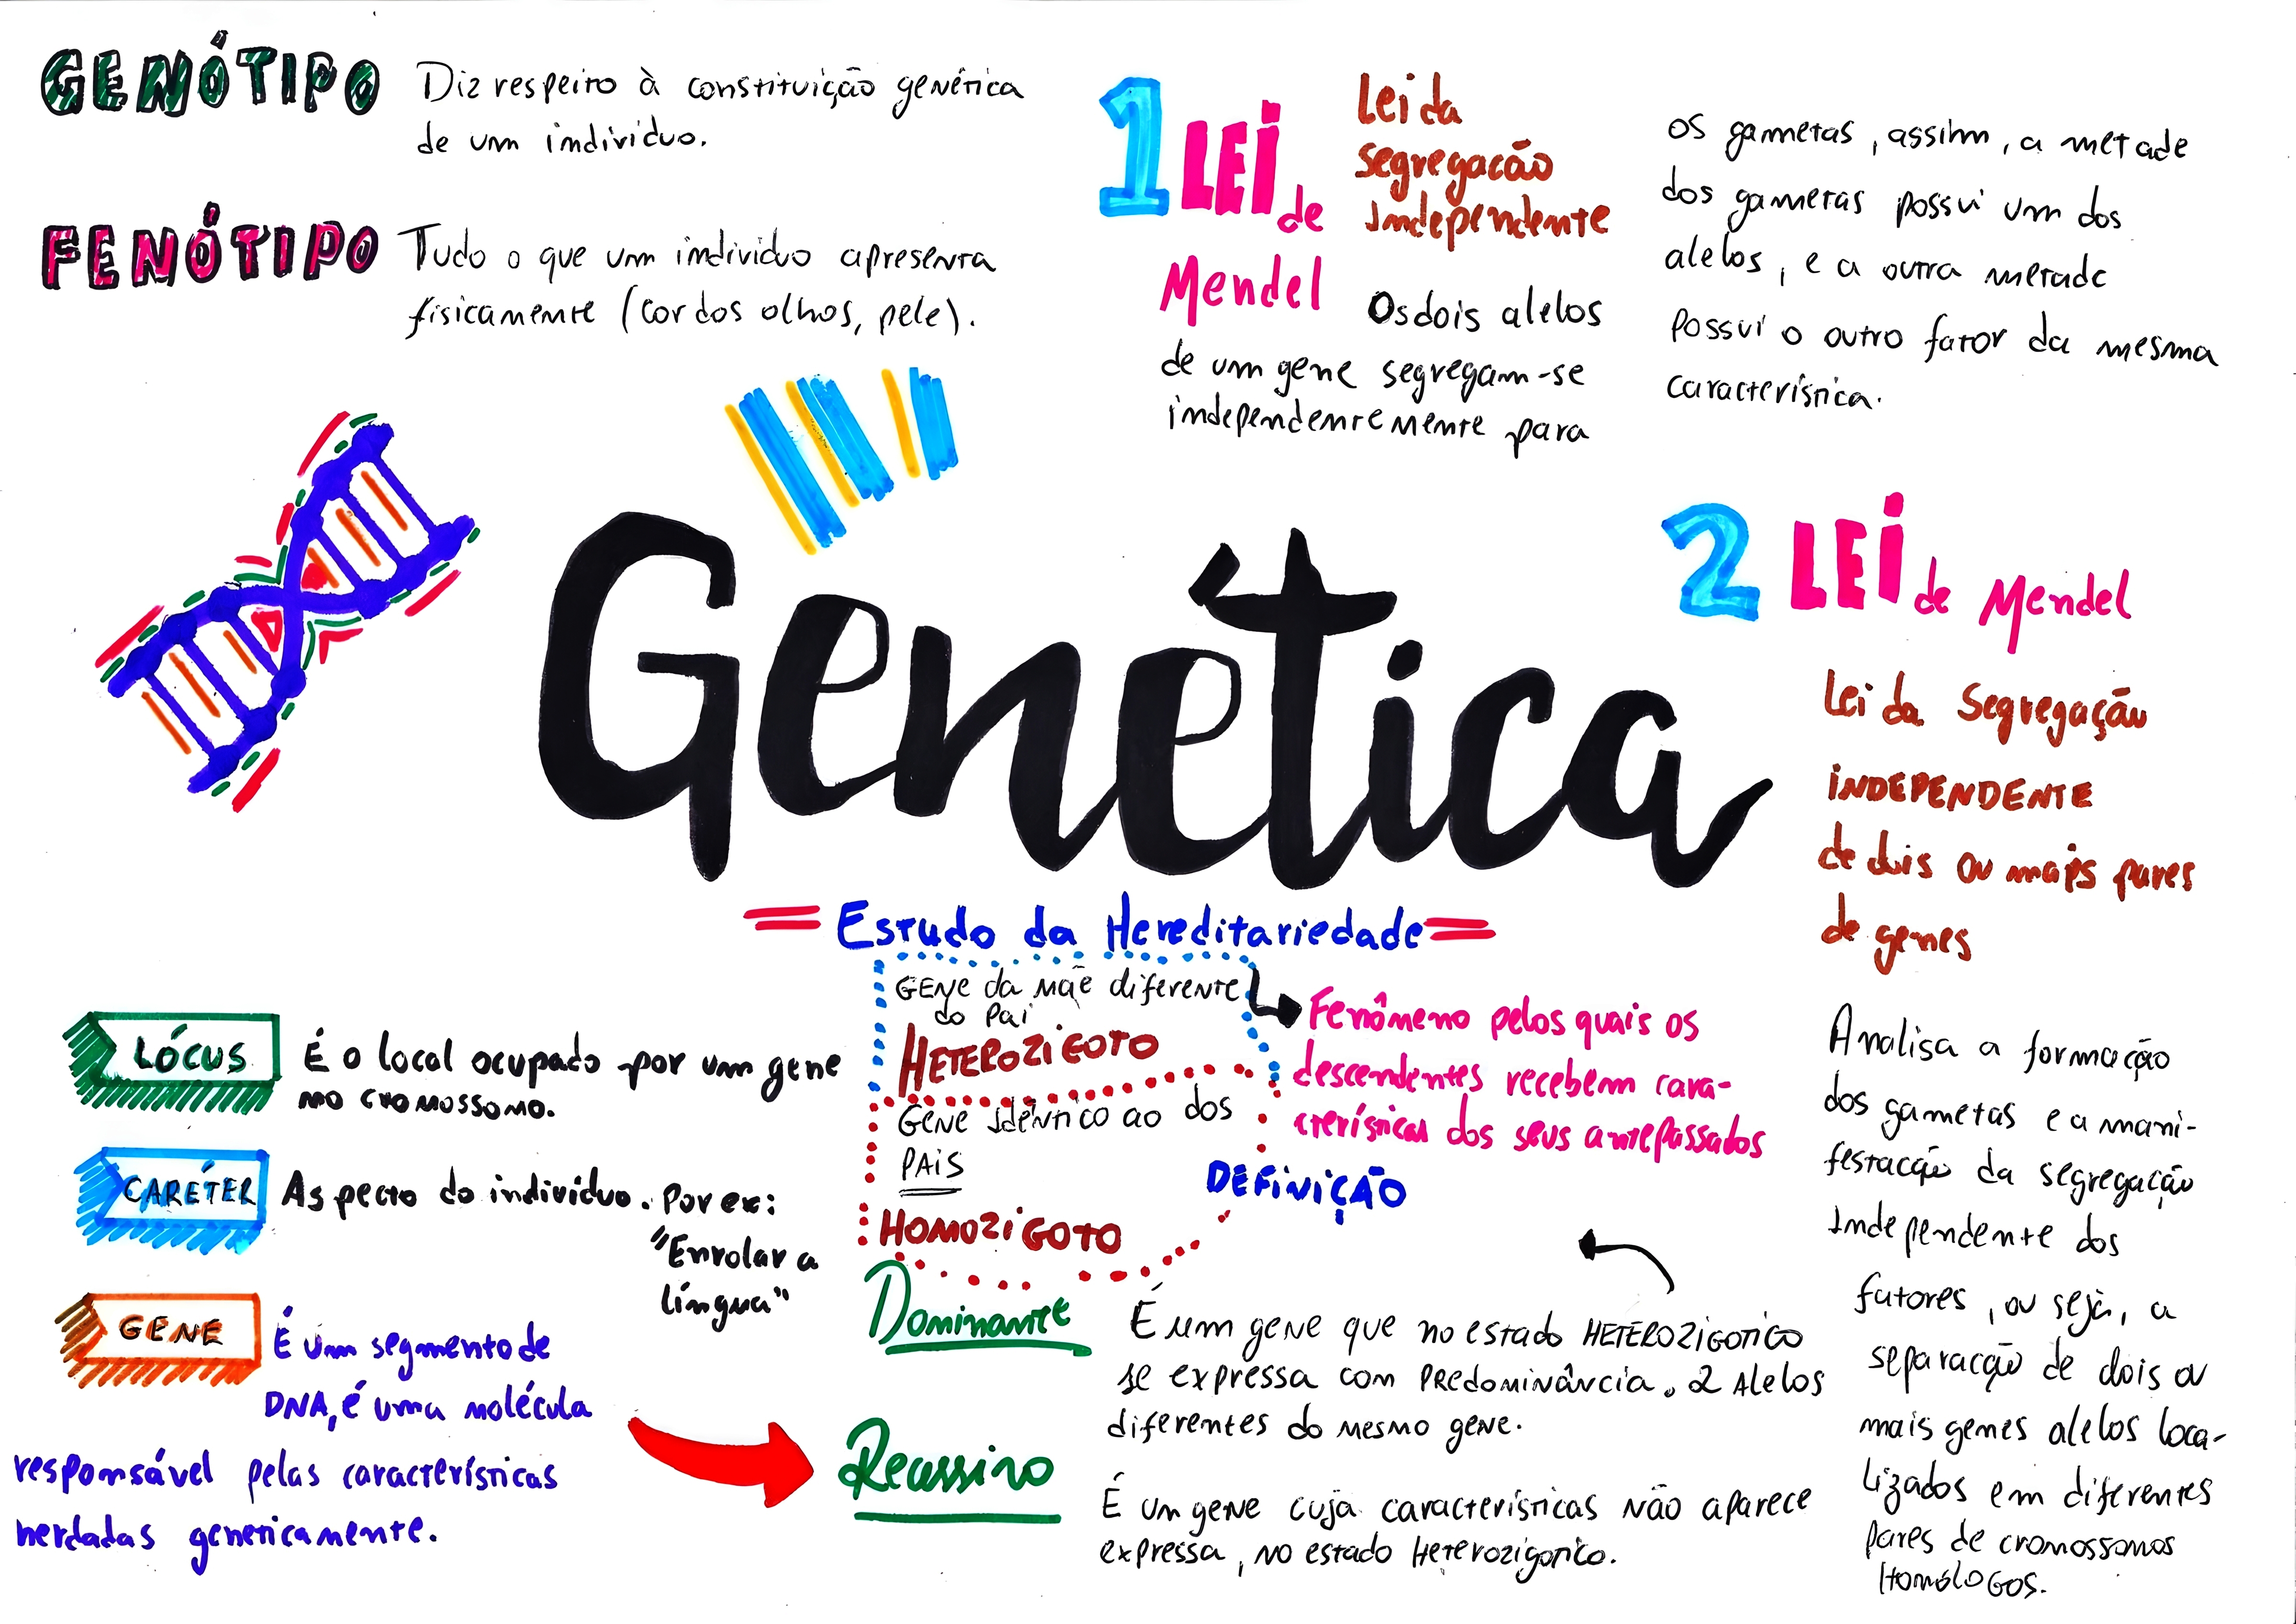 GENÓTIPO
Diz respeito à constituição genética
de um individuo.
FENÓTIPO
Tudo o que um individuo apresenta
fisicamente (cor dos olhos, pele).
1 LEI de
Mendel
Lei da
Segregacão
Independente
Os dois alelos
de um gene segregam-se
independentemente para
os gametas, assim, a metade
dos gametas possui um dos
alelos, e a outra metade
possui o outro fator da mesma
característica.
Genética
= Estudo da Hereditariedade =
2 LEI de Mendel
Lei da Segregação
INDEPENDENTE
de dois ou mais pares
de genes
Analisa a formação
dos gametas e a mani-
festacção da segregação
Independente dos
fatores, ou seja, a
separacção de dois ou
mais genes alelos loca-
lizados em diferentes
pares de cromossomos
Homólogos.
LÓCUS
É o local ocupado por um gene
no cromossomo.
CARÉTER
Aspecto do individuo. Por ex:
"Enrolar a
língua"
GENE
É um segmento de
DNA, é uma molécula
responsável pelas características
herdadas geneticamente.
GENE da mãe diferente
do Pai
HETEROZIGOTO
GENE Idêntico ao dos
PAIS
HOMOZIGOTO
Fenômeno pelos quais os
descendentes recebem cara-
cterísticas dos seus antepassados
DEFINIÇÃO
Dominante
É um gene que no estado HETEROZIGOTICO
se expressa com PREDOMINÂNCIA. 2 Alelos
diferentes do mesmo gene.
Recessivo
É um gene cuja características não aparece
expressa, no estado Heterozigotico.